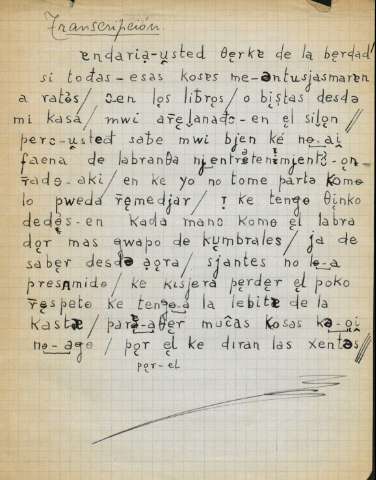 Transcripción.
endariạ‿usted θẹrke de la bẹrdad
si toðas‿esas koses me‿əntusjasmaren
a ratọs / ɔ‿en lọs librọs / o bịstas desdə
mi kasa / mwi ař̄ẹlanaðo‿en el silọn //
perɔ‿usted saƀe mwi bjen kẹ no‿ai
faena de labranθa nj‿entrẹtẹnimjentọ‿on
r̄aðo‿aki / en ke yo no tome partə komo
lo pwẹda r̄ẹmedjar / ị ke tengọ θịnko
dedọs‿en kada manọ komọ ẹl labra
dọr mas gwapo de kụmbrales / ja de
sabẹr desdə aọra / sjantes no lo‿a
presumido / ke kisjẹra pẹrdẹr ẹl poko
r̄ẹspẹto ke tengọ‿a la lebitə de la
kastə / parə‿abẹr muĉas kosas kə‿ọi
no‿ago / pọr ẹl ke diran las xentəs //
pọr‿el